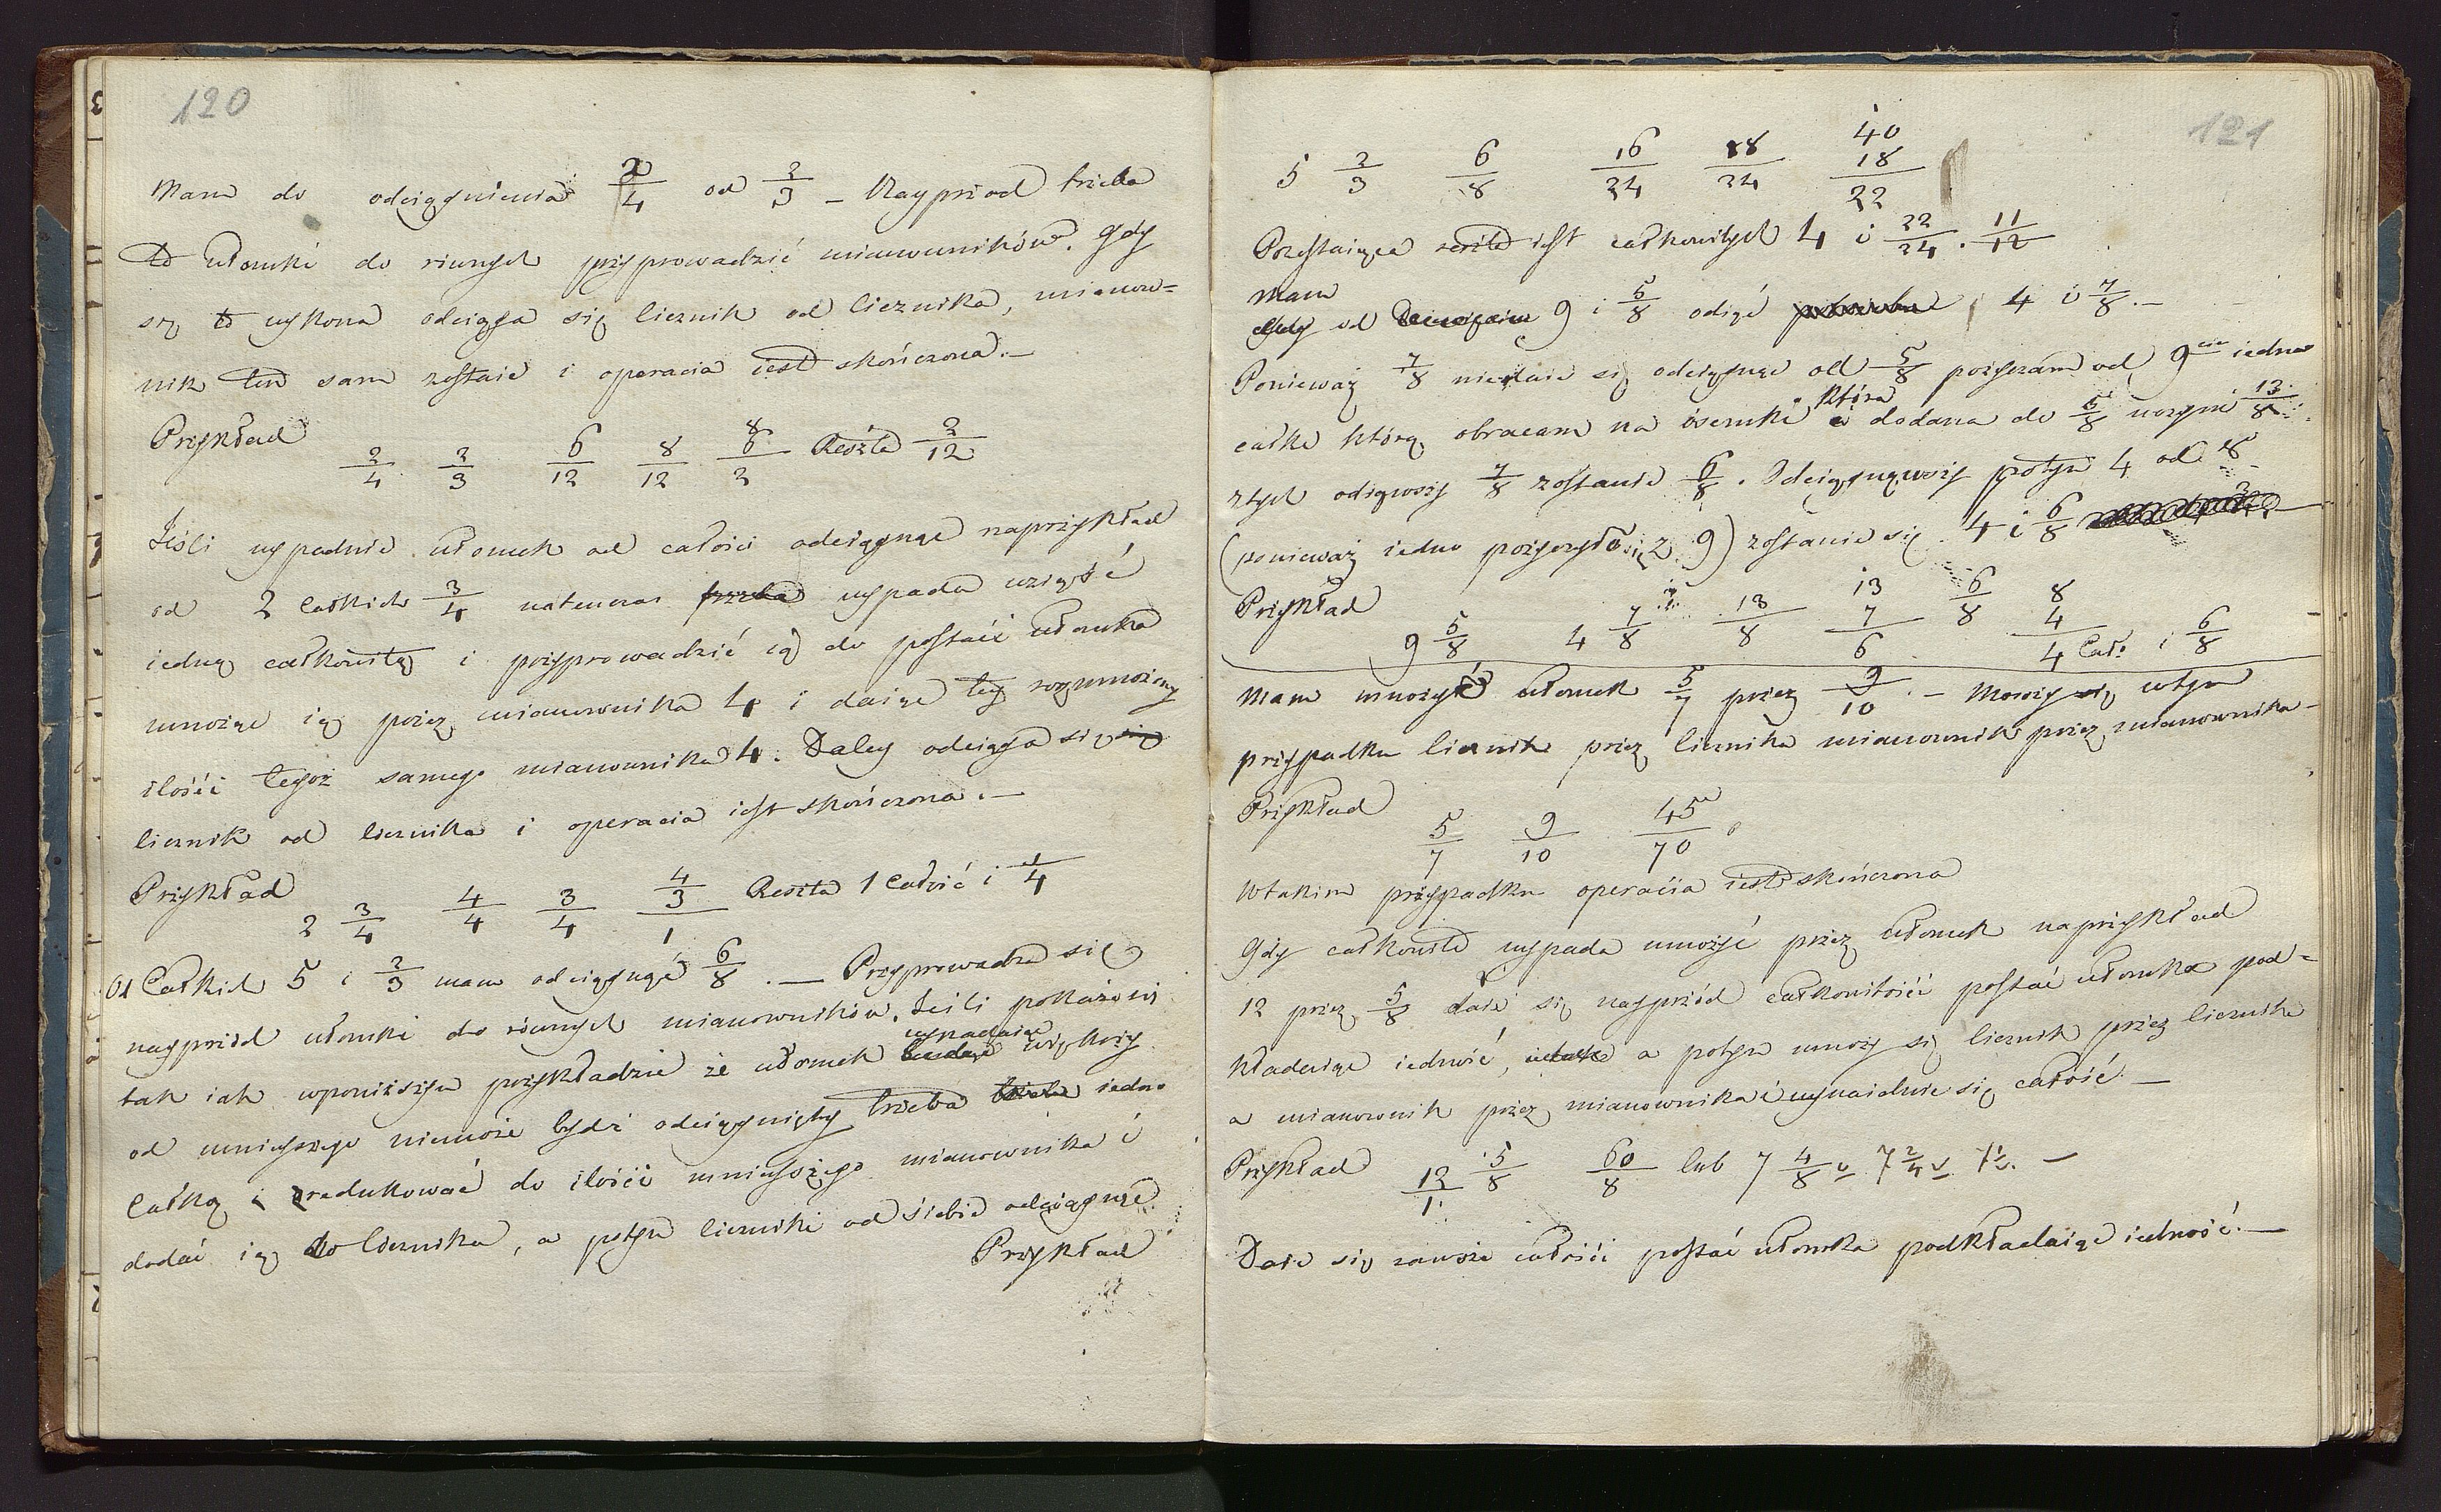 120
Mam do odciągnienia 2/4 od 2/3 – Nayprzod trzeba
te ułomki do równych przyprowadzić mianowników. Gdy
się to wykona odciąga się licznik od licznika, mianow=
nik ten sam zostaie i operacia iest skończona.–
Przykład
2/4 2/3 6/12 8/12 8 6/2 Reszta 2/12
Jeśli wypadnie ułomek od całości odciągnąć naprzykład
od 2 Całkich 3/4 natenczas trzeba wypada wziąść
iedną całkowitą i przyprowadzić ią do postaci ułomka
mnożąc ią przez mianownika 4 i daiąc tey rozmnożoney
ilości tegoż samego mianownika 4. Daley odciąga się
licznik od licznika i operacia iest skończona.–
Przykład
2 3/4 4/4 3/4 4 3/1 Reszta 1 Całość i 1/4
Od Całkich 5 i 2/3 mam odciągnąć 6/8. – Przyprowadza się
nayprzód ułomki do równych mianowników. Jeśli pokaże się
tak iak wponiższym przykładzie że ułomek wypadaiące większy
od mnieyszego niemoże bydź odciągnięty trzeba iedno
Całką i zredukować do ilości mnieyszego mianownika i
dodać ią do licznika, a potym liczniki od siebie odciągnąć
Przykład
121
5 2/3 6/8 16/24 18/24 40 18/22
Pozostaiąca reszta iest całkowitych 4 i 22/24. 11/12
Mam
od 9 i 5/8 odiąć 4 i 7/8.–
Ponieważ 7/8 niedaie się odciągnąć od 5/8 pożyczam od 9 iedna
całke którą obracam na ósemki która dodana do 5/8 uczyni 13/8
ztych odiąwszy 7/8 zostanie 6/8. Odciągnąwszy potym 4 od 8
(ponieważ iedno pożyczyło się z 9) zostanie się 4 i 6/8
Przykład
9 5/8 4 7/8 13/8 13 7/6 6/8 8 4/4 Cał. i 6/8
Mam mnożyć ułomek 5/7 przez 9/10.– Mnoży się wtym
przypadku licznik przez licznika mianownik przez mianownika–
Przykład
5/7 9/10 45/70
Wtakim przypadku operaciia iest skończona
Gdy całkowite wypada mnożyć przez ułomek naprzykład
12 przez 5/8 daie się nayprzód całkowitości postać ułomka pod=
kładaiąc iedność, a potym mnoży się licznik przez licznika
a mianownik przez mianownika i wynaidzie się całość.–
Przykład 12/1 5/8 60/8 lub 7 4/8 v 7 2/4 v 7 1/2. –
Daie się zawsze całości postać ułomka podkładaiąc iedność.–